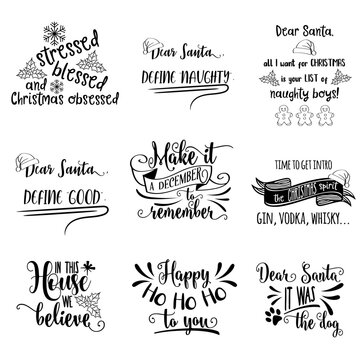 stressed
blessed
and
Christmas obsessed
Dear Santa,
DEFINE NAUGHTY
Dear Santa,
all I want for CHRISTMAS
is your LIST of
naughty boys!
Dear Santa,
DEFINE GOOD
Make it
A DECEMBER
to
remember
TIME TO GET INTRO
the CHRISTMAS spirit
GIN, VODKA, WHISKY...
IN THIS
House
WE
believe
Happy
HO HO HO
to you
Dear Santa
IT WAS
the dog